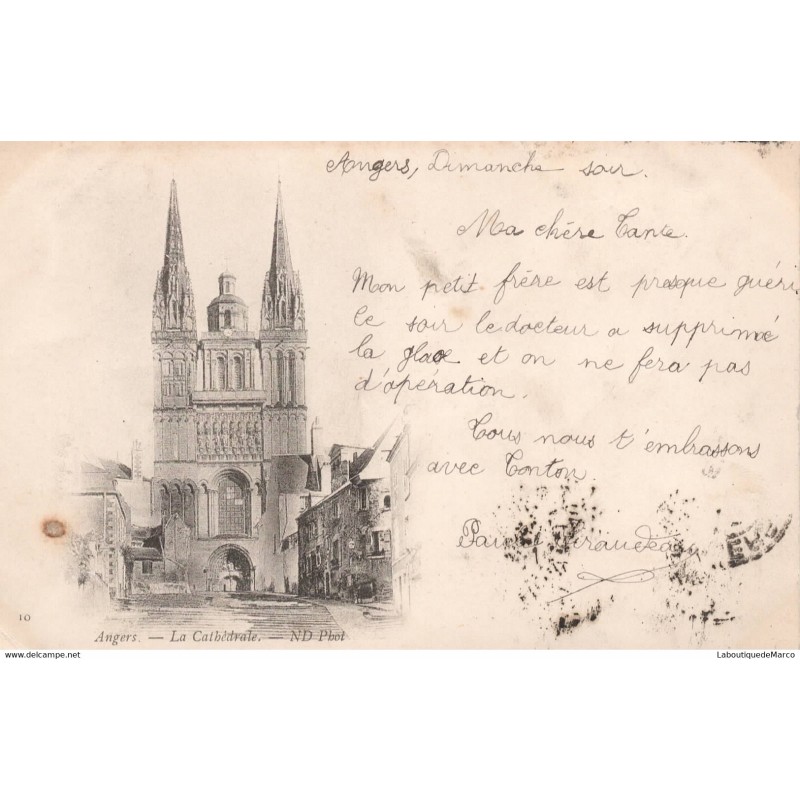 Angers, Dimanche soir.
Ma chère Tante.
Mon petit frère est presque guéri
ce soir le docteur a supprimé
la glace et on ne fera pas
d'opération.
Tous nous t'embrassons
avec Tonton.
10
Angers. — La Cathédrale. — ND Phot
www.delcampe.net
LaboutiquedeMarco